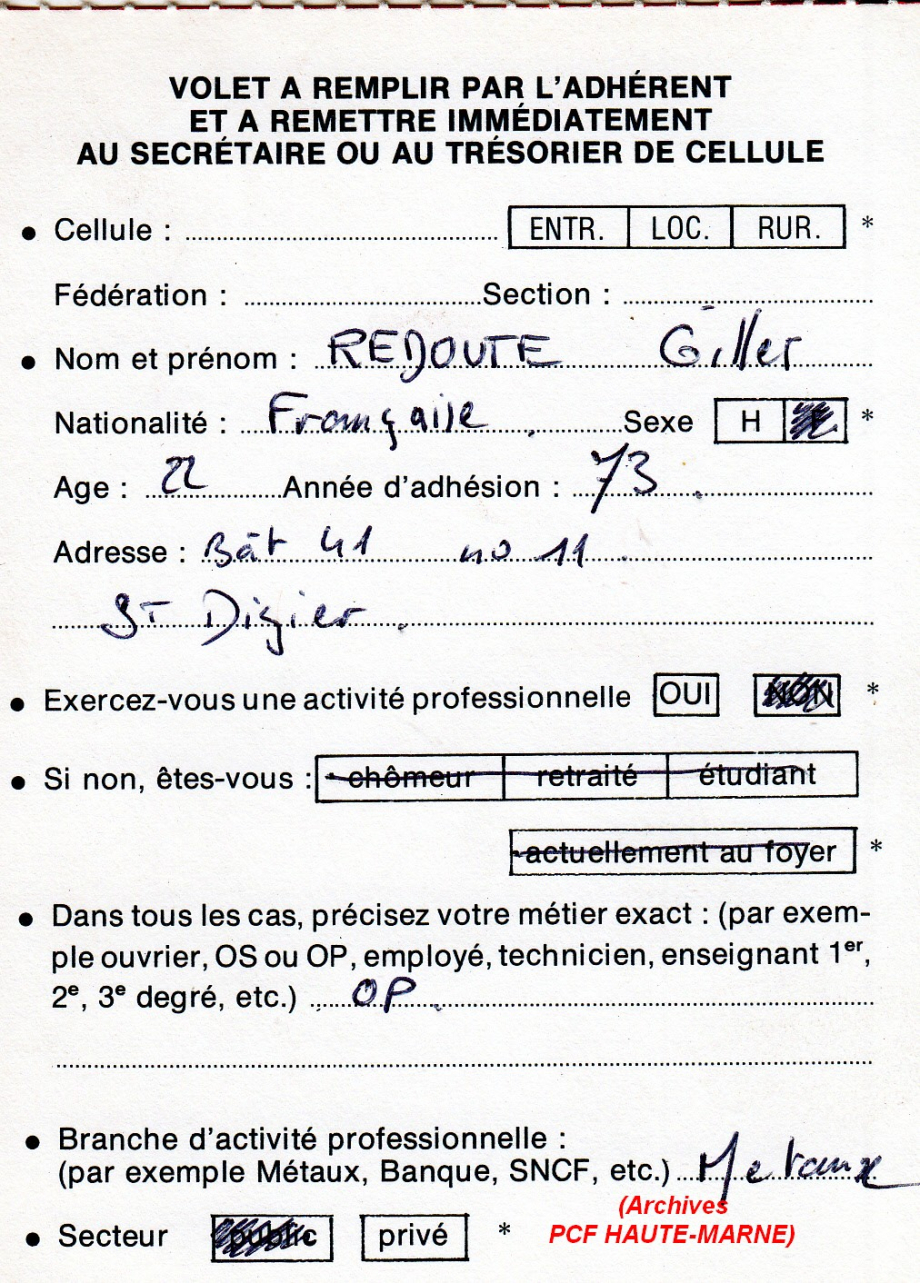 VOLET A REMPLIR PAR L'ADHÉRENT
ET A REMETTRE IMMÉDIATEMENT
AU SECRÉTAIRE OU AU TRÉSORIER DE CELLULE
● Cellule : ENTR. LOC. RUR. *
Fédération : Section :
● Nom et prénom : REDOUTE Gilles
Nationalité : Française . Sexe H *
Age : 22 Année d'adhésion : 73 .
Adresse : Bât 41 no 11 .
ST Dizier .
● Exercez-vous une activité professionnelle OUI NON *
● Si non, êtes-vous : chômeur retraité étudiant
actuellement au foyer *
● Dans tous les cas, précisez votre métier exact : (par exem-
ple ouvrier, OS ou OP, employé, technicien, enseignant 1er,
2e, 3e degré, etc.) OP .
● Branche d'activité professionnelle :
(par exemple Métaux, Banque, SNCF, etc.) Metaux
(Archives
PCF HAUTE-MARNE)
● Secteur public privé *